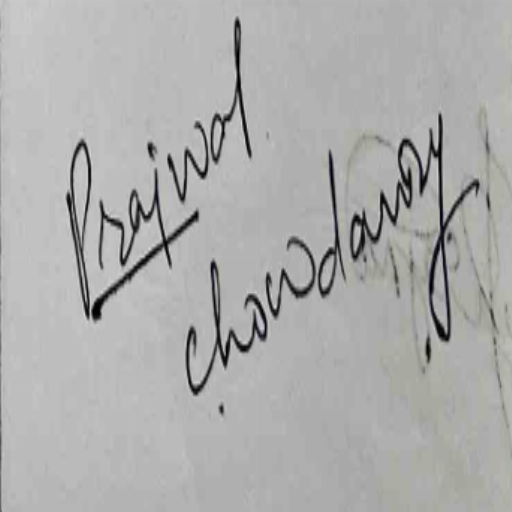 Prajwal
Chowdary